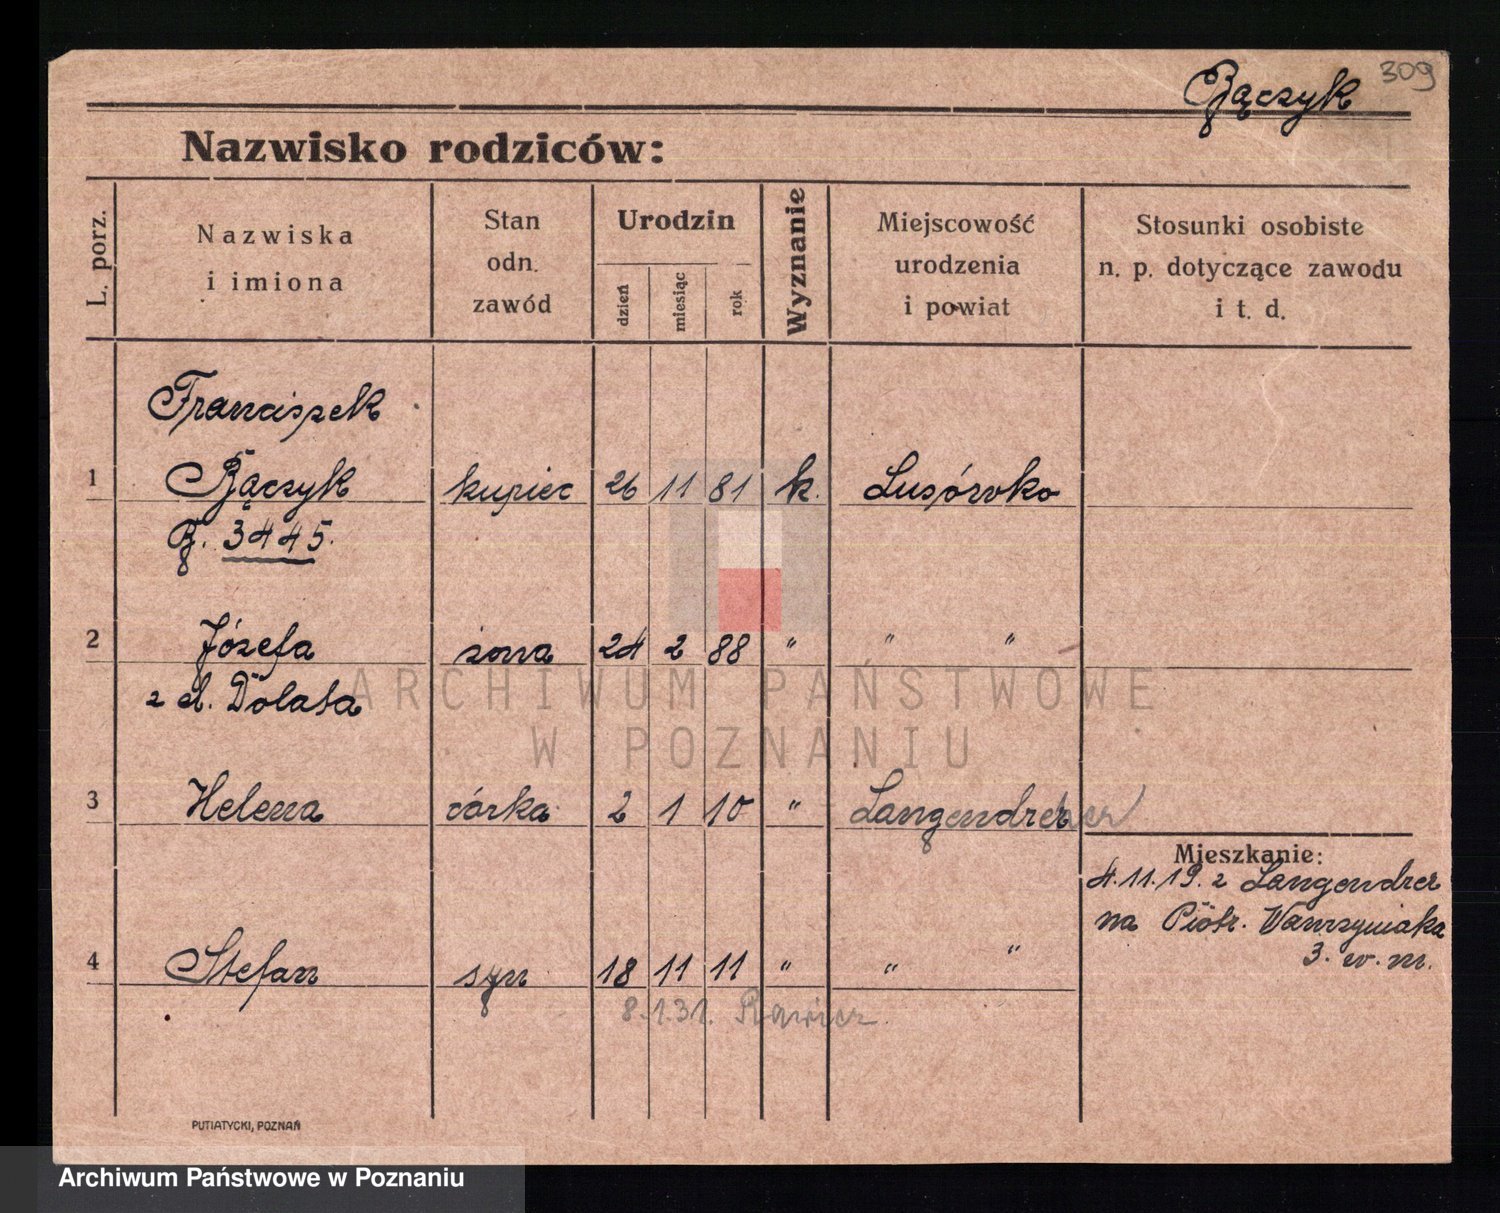 309
Bączyk
Nazwisko rodziców:
L. porz.
Nazwiska
i imiona
Stan
odn.
zawód
Urodzin
dzień
miesiąc
rok
Wyznanie
Miejscowość
urodzenia
i powiat
Stosunki osobiste
n. p. dotyczące zawodu
i t. d.
Franciszek
1 Bączyk kupiec 26 11 81 k. Lusówko
B. 3445.
2 Józefa żona 24 2 88 " " "
z d. Dolata
3 Helena córka 2 1 10 " Langendreer
Mieszkanie:
4.11.19. z Langendreer
na Piotr. Wawrzyniaka
3. w. m.
4 Stefan syn 18 11 11 " " "
8.1.31. Rawicz.
PUTIATYCKI, POZNAŃ
ARCHIWUM PAŃSTWOWE
W POZNANIU
Archiwum Państwowe w Poznaniu